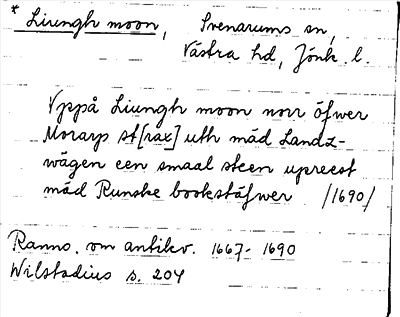 * Liungh moon, Svenarums sn,
Västra hd, Jönk. l.
Vppå Liungh moon norr öfwer
Morarp st[rax] uth mäd Landz-
wägen een smaal steen upreest
mäd Runske bookstäfwer /1690/
Ranns. om antikv. 1667- 1690
Wilstadius s. 204